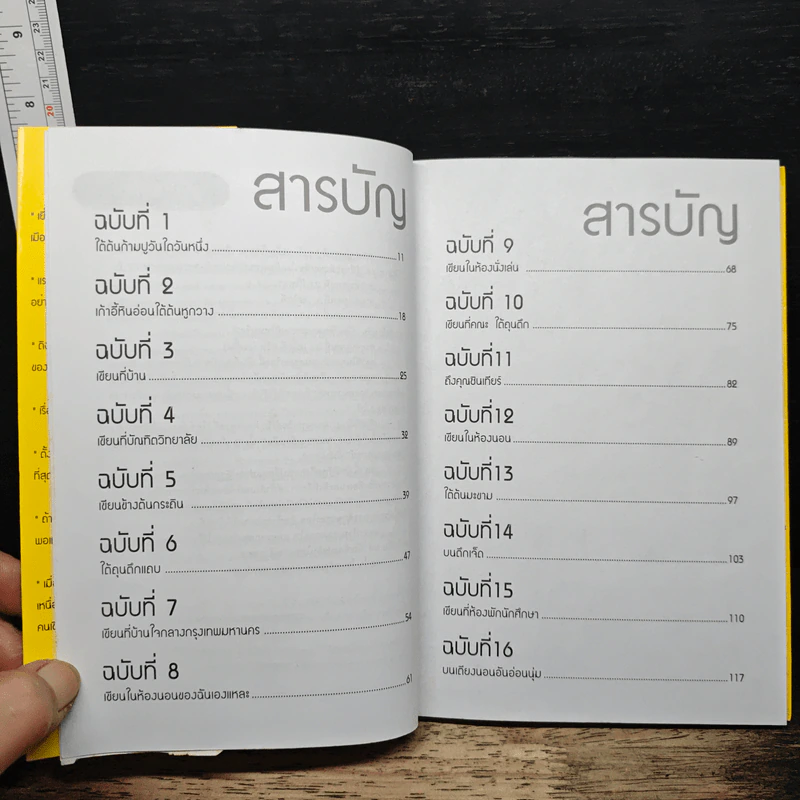 สารบัญ
ฉบับที่ 1
ใต้ต้นก้ามปูวันใดวันหนึ่ง 11
ฉบับที่ 2
เก้าอี้หินอ่อนใต้ต้นหูกวาง 18
ฉบับที่ 3
เขียนที่บ้าน 25
ฉบับที่ 4
เขียนที่บัณฑิตวิทยาลัย 32
ฉบับที่ 5
เขียนข้างต้นกระถิน 39
ฉบับที่ 6
ใต้ถุนตึกแถบ 47
ฉบับที่ 7
เขียนที่บ้านใจกลางกรุงเทพมหานคร 54
ฉบับที่ 8
เขียนในห้องนอนของฉันเองแหละ 61
สารบัญ
ฉบับที่ 9
เขียนในห้องนั่งเล่น 68
ฉบับที่ 10
เขียนที่คณะ ใต้ถุนตึก 75
ฉบับที่11
ถึงคุณซินเทียร์ 82
ฉบับที่12
เขียนในห้องนอน 89
ฉบับที่13
ใต้ต้นมะขาม 97
ฉบับที่14
บนตึกเจ็ด 103
ฉบับที่15
เขียนที่ห้องพักนักศึกษา 110
ฉบับที่16
บนเตียงนอนอันอ่อนนุ่ม 117